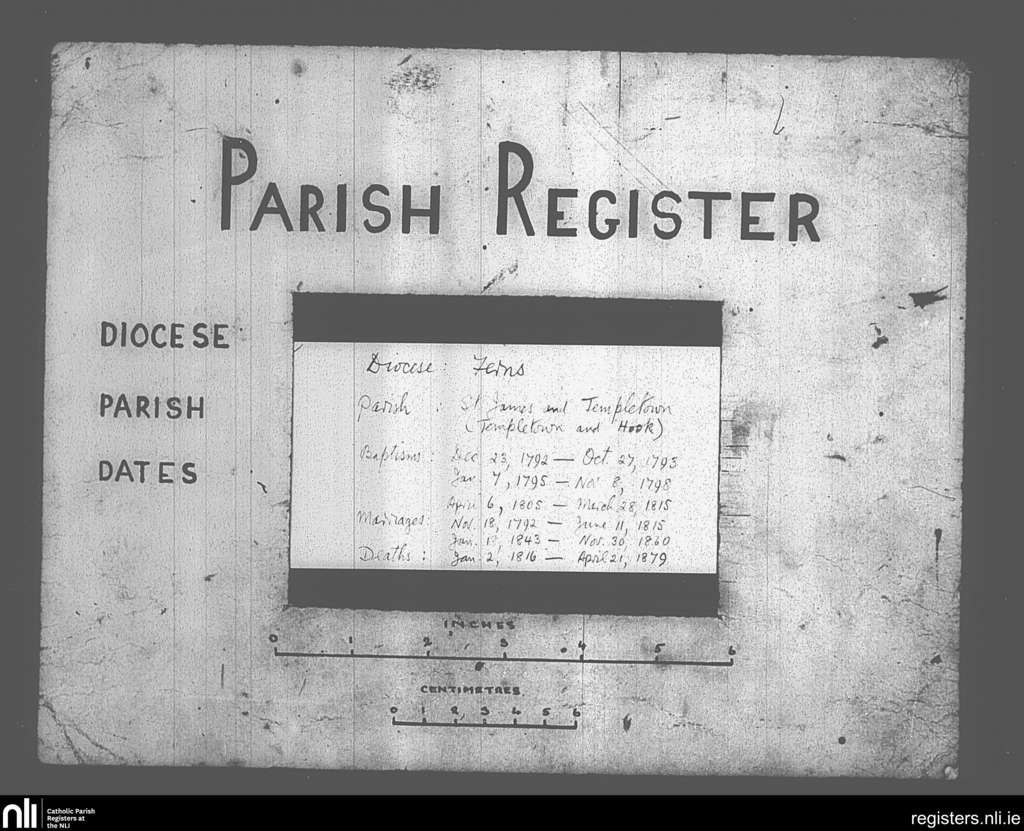 PARISH REGISTER
DIOCESE
PARISH
DATES
Diocese: Ferns
Parish : St James and Templetown
(Templetown and Hook)
Baptisms: Dec 23, 1792 — Oct. 27, 1793
Jan. 7, 1795 — Nov 8, 1798
April 6, 1805 — March 28, 1815
Marriages: Nov. 18, 1792 — June 11, 1815
Jan. 1843 — Nov. 30, 1860
Deaths : Jan. 2, 1816 — April 21, 1879
INCHES
0 1 2 3 4 5 6
CENTIMETRES
0 1 2 3 4 5 6
nli
Catholic Parish
Registers at
the NLI
registers.nli.ie